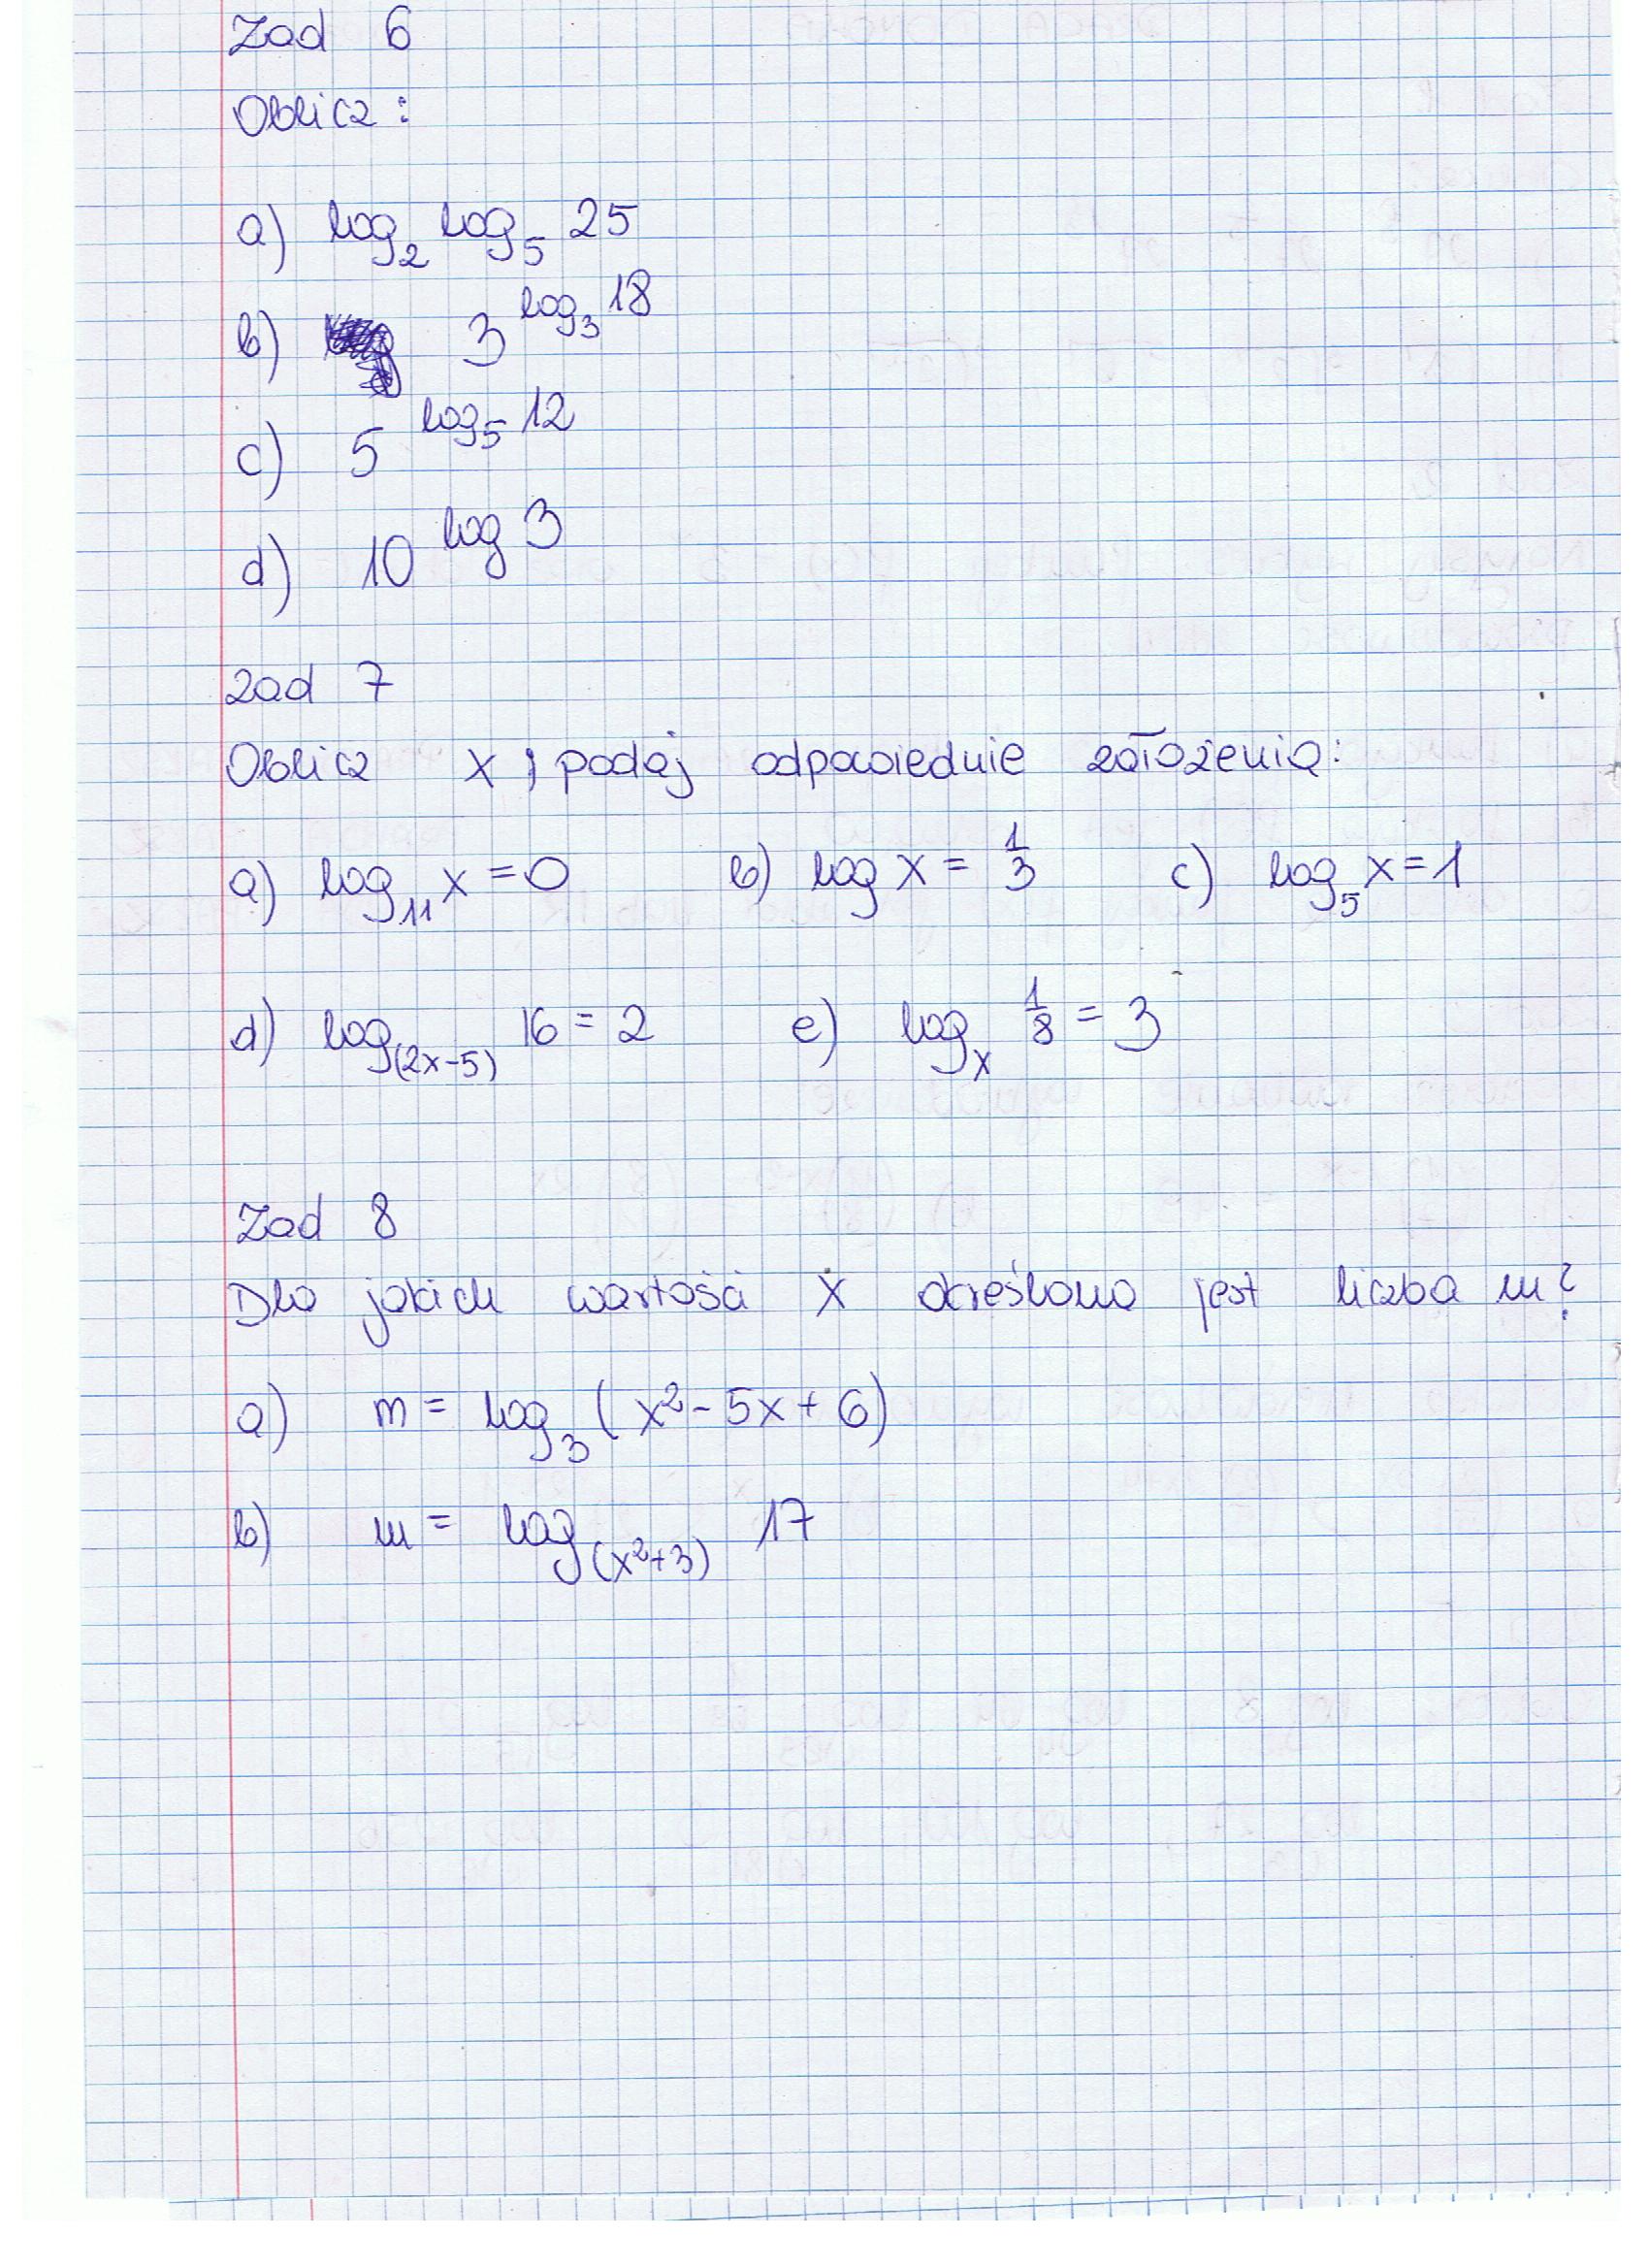 Zad 6
Oblicz:
a) log₂ log₅ 25
b) 3^(log₃ 18)
c) 5^(log₅ 12)
d) 10^(log 3)
Zad 7
Oblicz x i podaj odpowiednie założenia:
a) log₁₁ x = 0 b) log x = 1/3 c) log₅ x = 1
d) log₍₂ₓ₋₅₎ 16 = 2 e) logₓ 1/8 = 3
Zad 8
Dla jakich wartości x określona jest liczba m?
a) m = log₃ (x² - 5x + 6)
b) m = log_(x²+3) 17